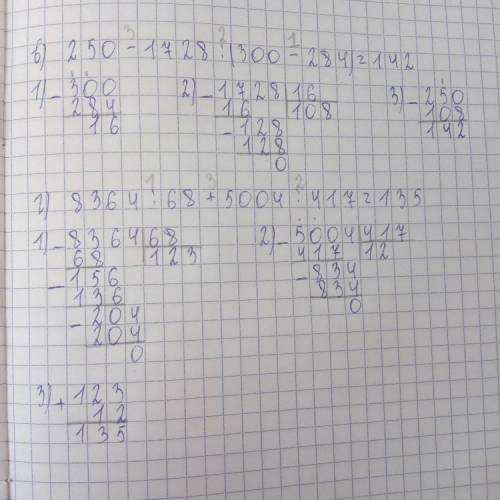 в) 250 - 1728 : (300 - 284) = 142
3 2 1
1) - 300
284
16
2) - 1728 | 16
16 108
- 128
128
0
3) - 250
108
142
г) 8364 : 68 + 5004 : 417 = 135
1 3 2
1) - 8364 | 68
68 123
- 156
136
- 204
204
0
2) - 5004 | 417
417 12
- 834
834
0
3) + 123
12
135